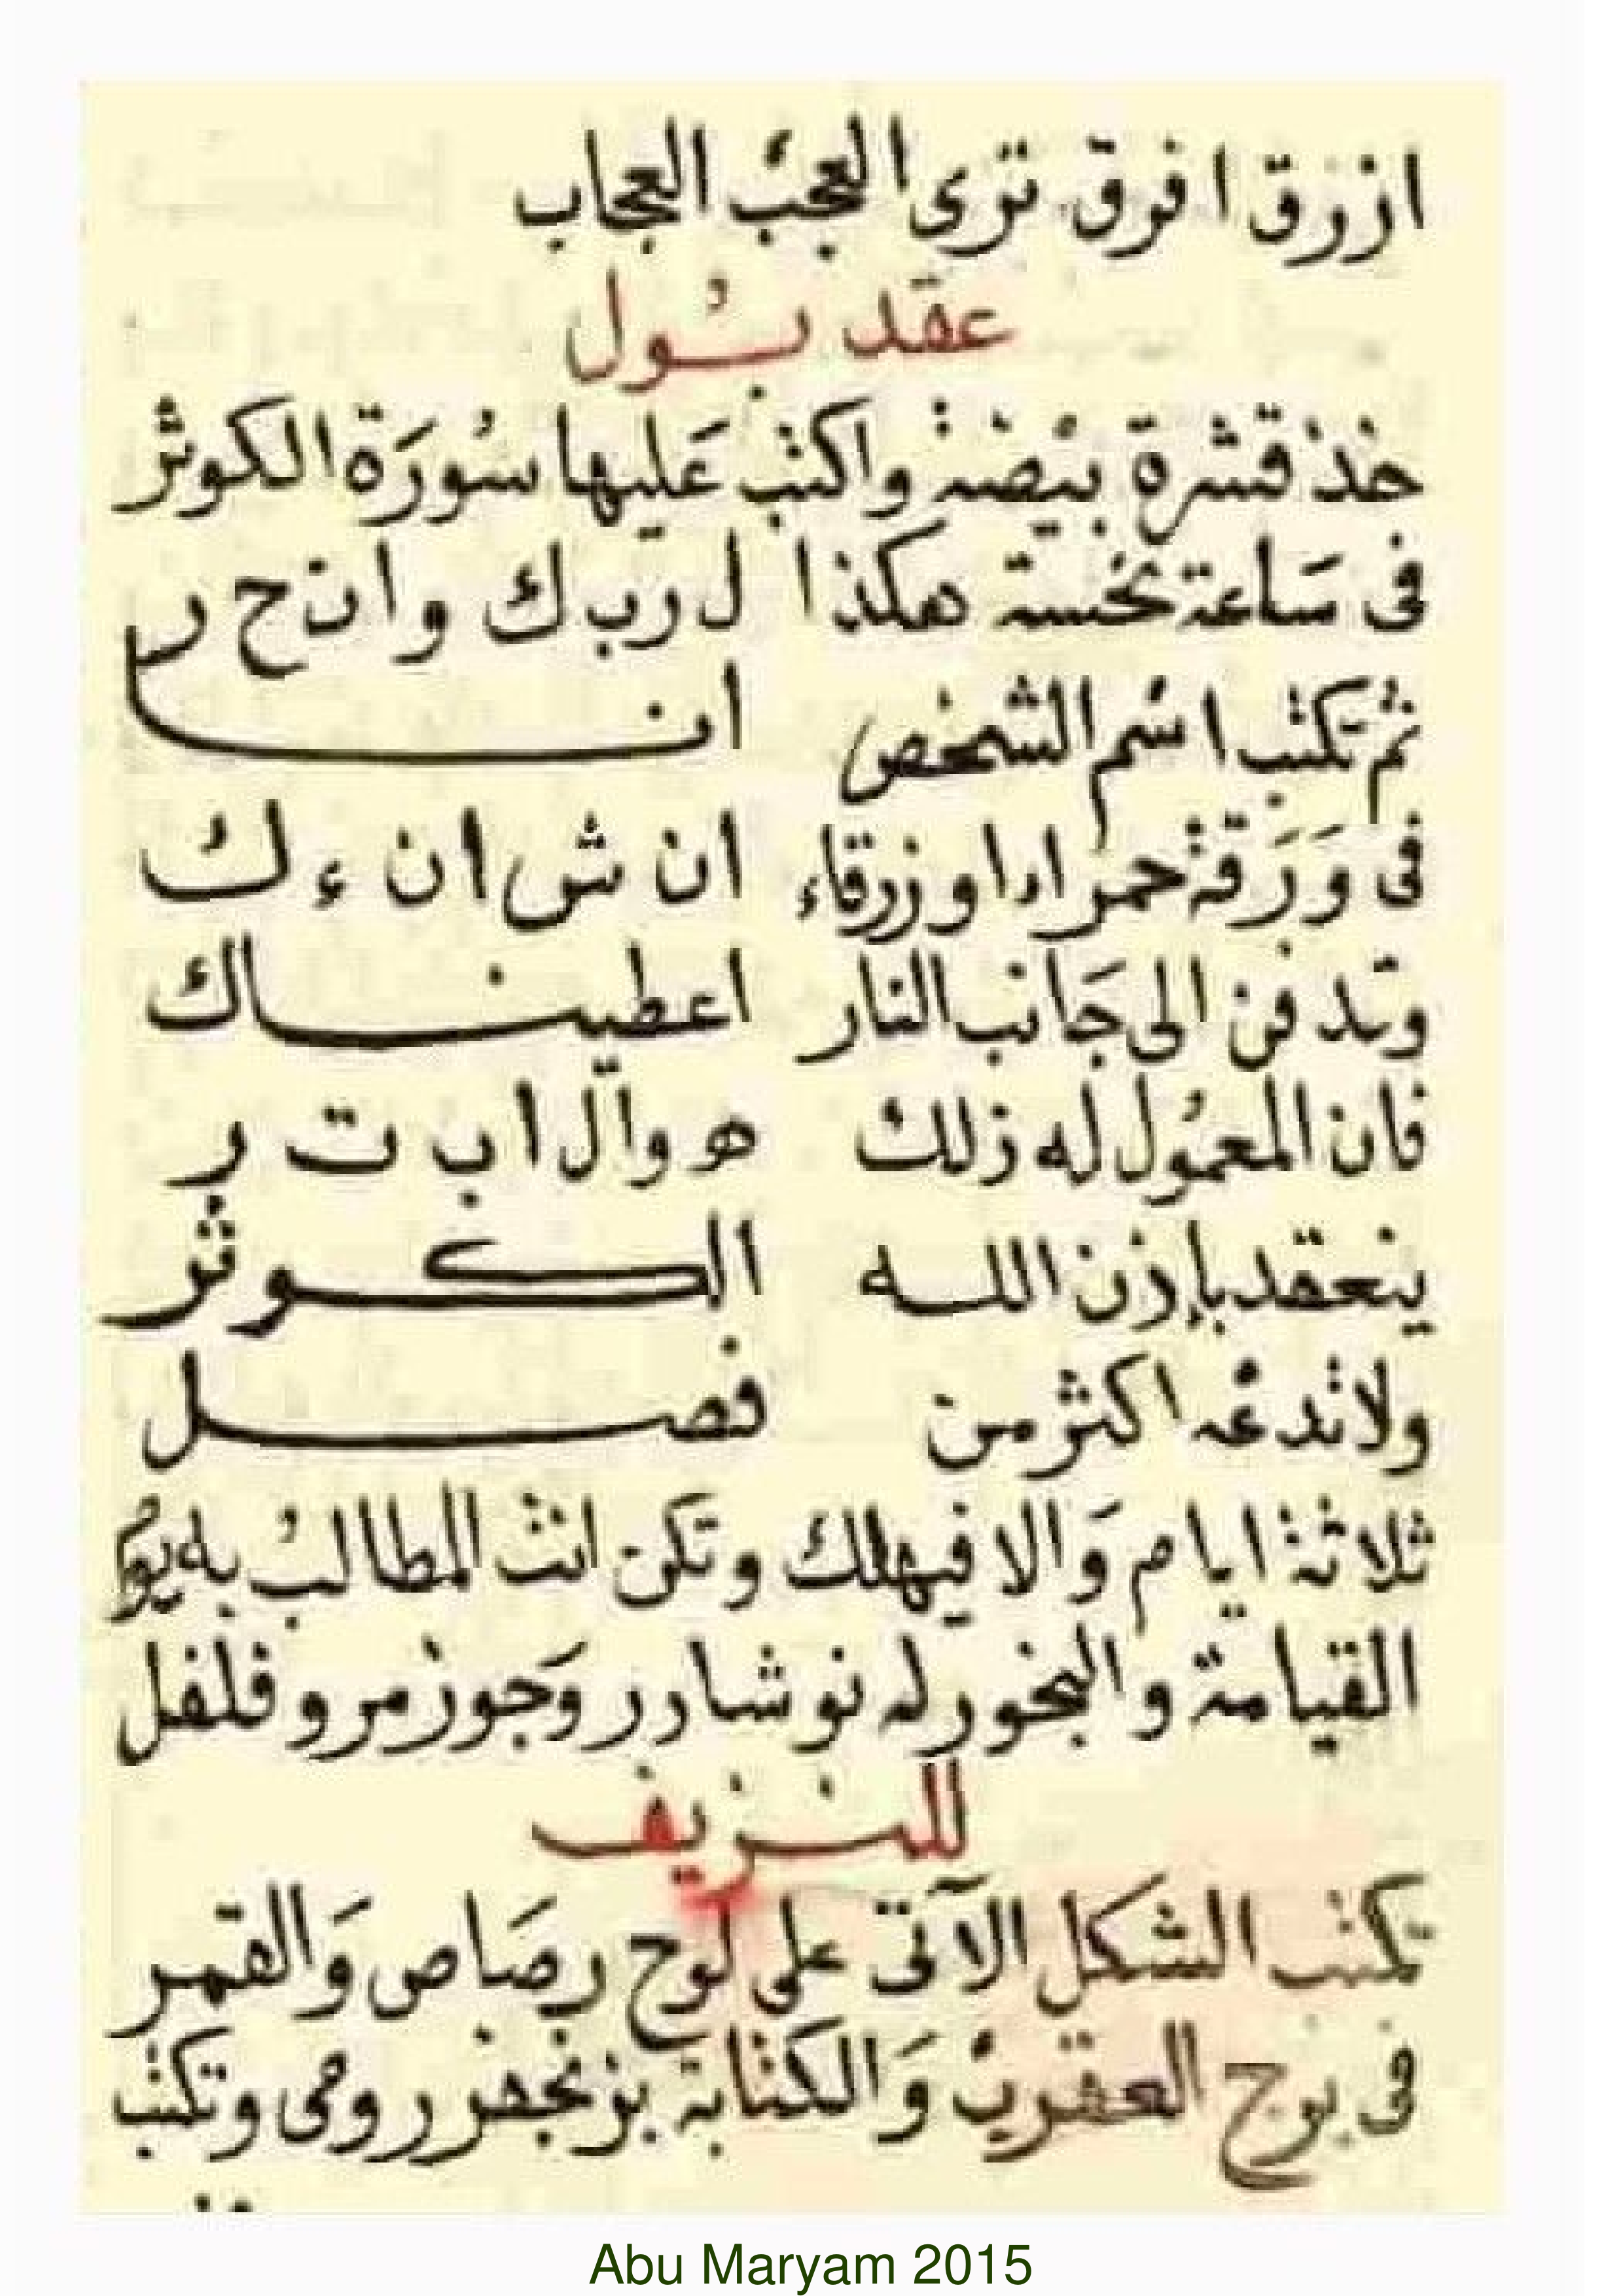 ازرق افرق ترى العجب العجاب
عقد بول
خذ قشرة بيضة واكتب عليها سورة الكوثر
فى ساعة نحسة هكذا ل ر ب ك وا ن ح ر
ثم تكتب اسم الشخص انا
فى ورقة حمرا او زرقاء ان ش ان ء ك
وتدفن الى جانب النار اعطيناك
فان المعمول له زلك ه و ال ا ب ت ر
ينعقد بإذن الله الكوثر
ولا تدعه اكثر من فصل
ثلاثة ايام والا فيهلك وتكن انت المطالب به يوم
القيامة والبخور له نوشادر وجوز مر وفلفل
للنزيف
تكتب الشكل الآتى على لوح رصاص والقمر
فى برج العقرب والكتابة بزنجفر رومى وتكتب
Abu Maryam 2015